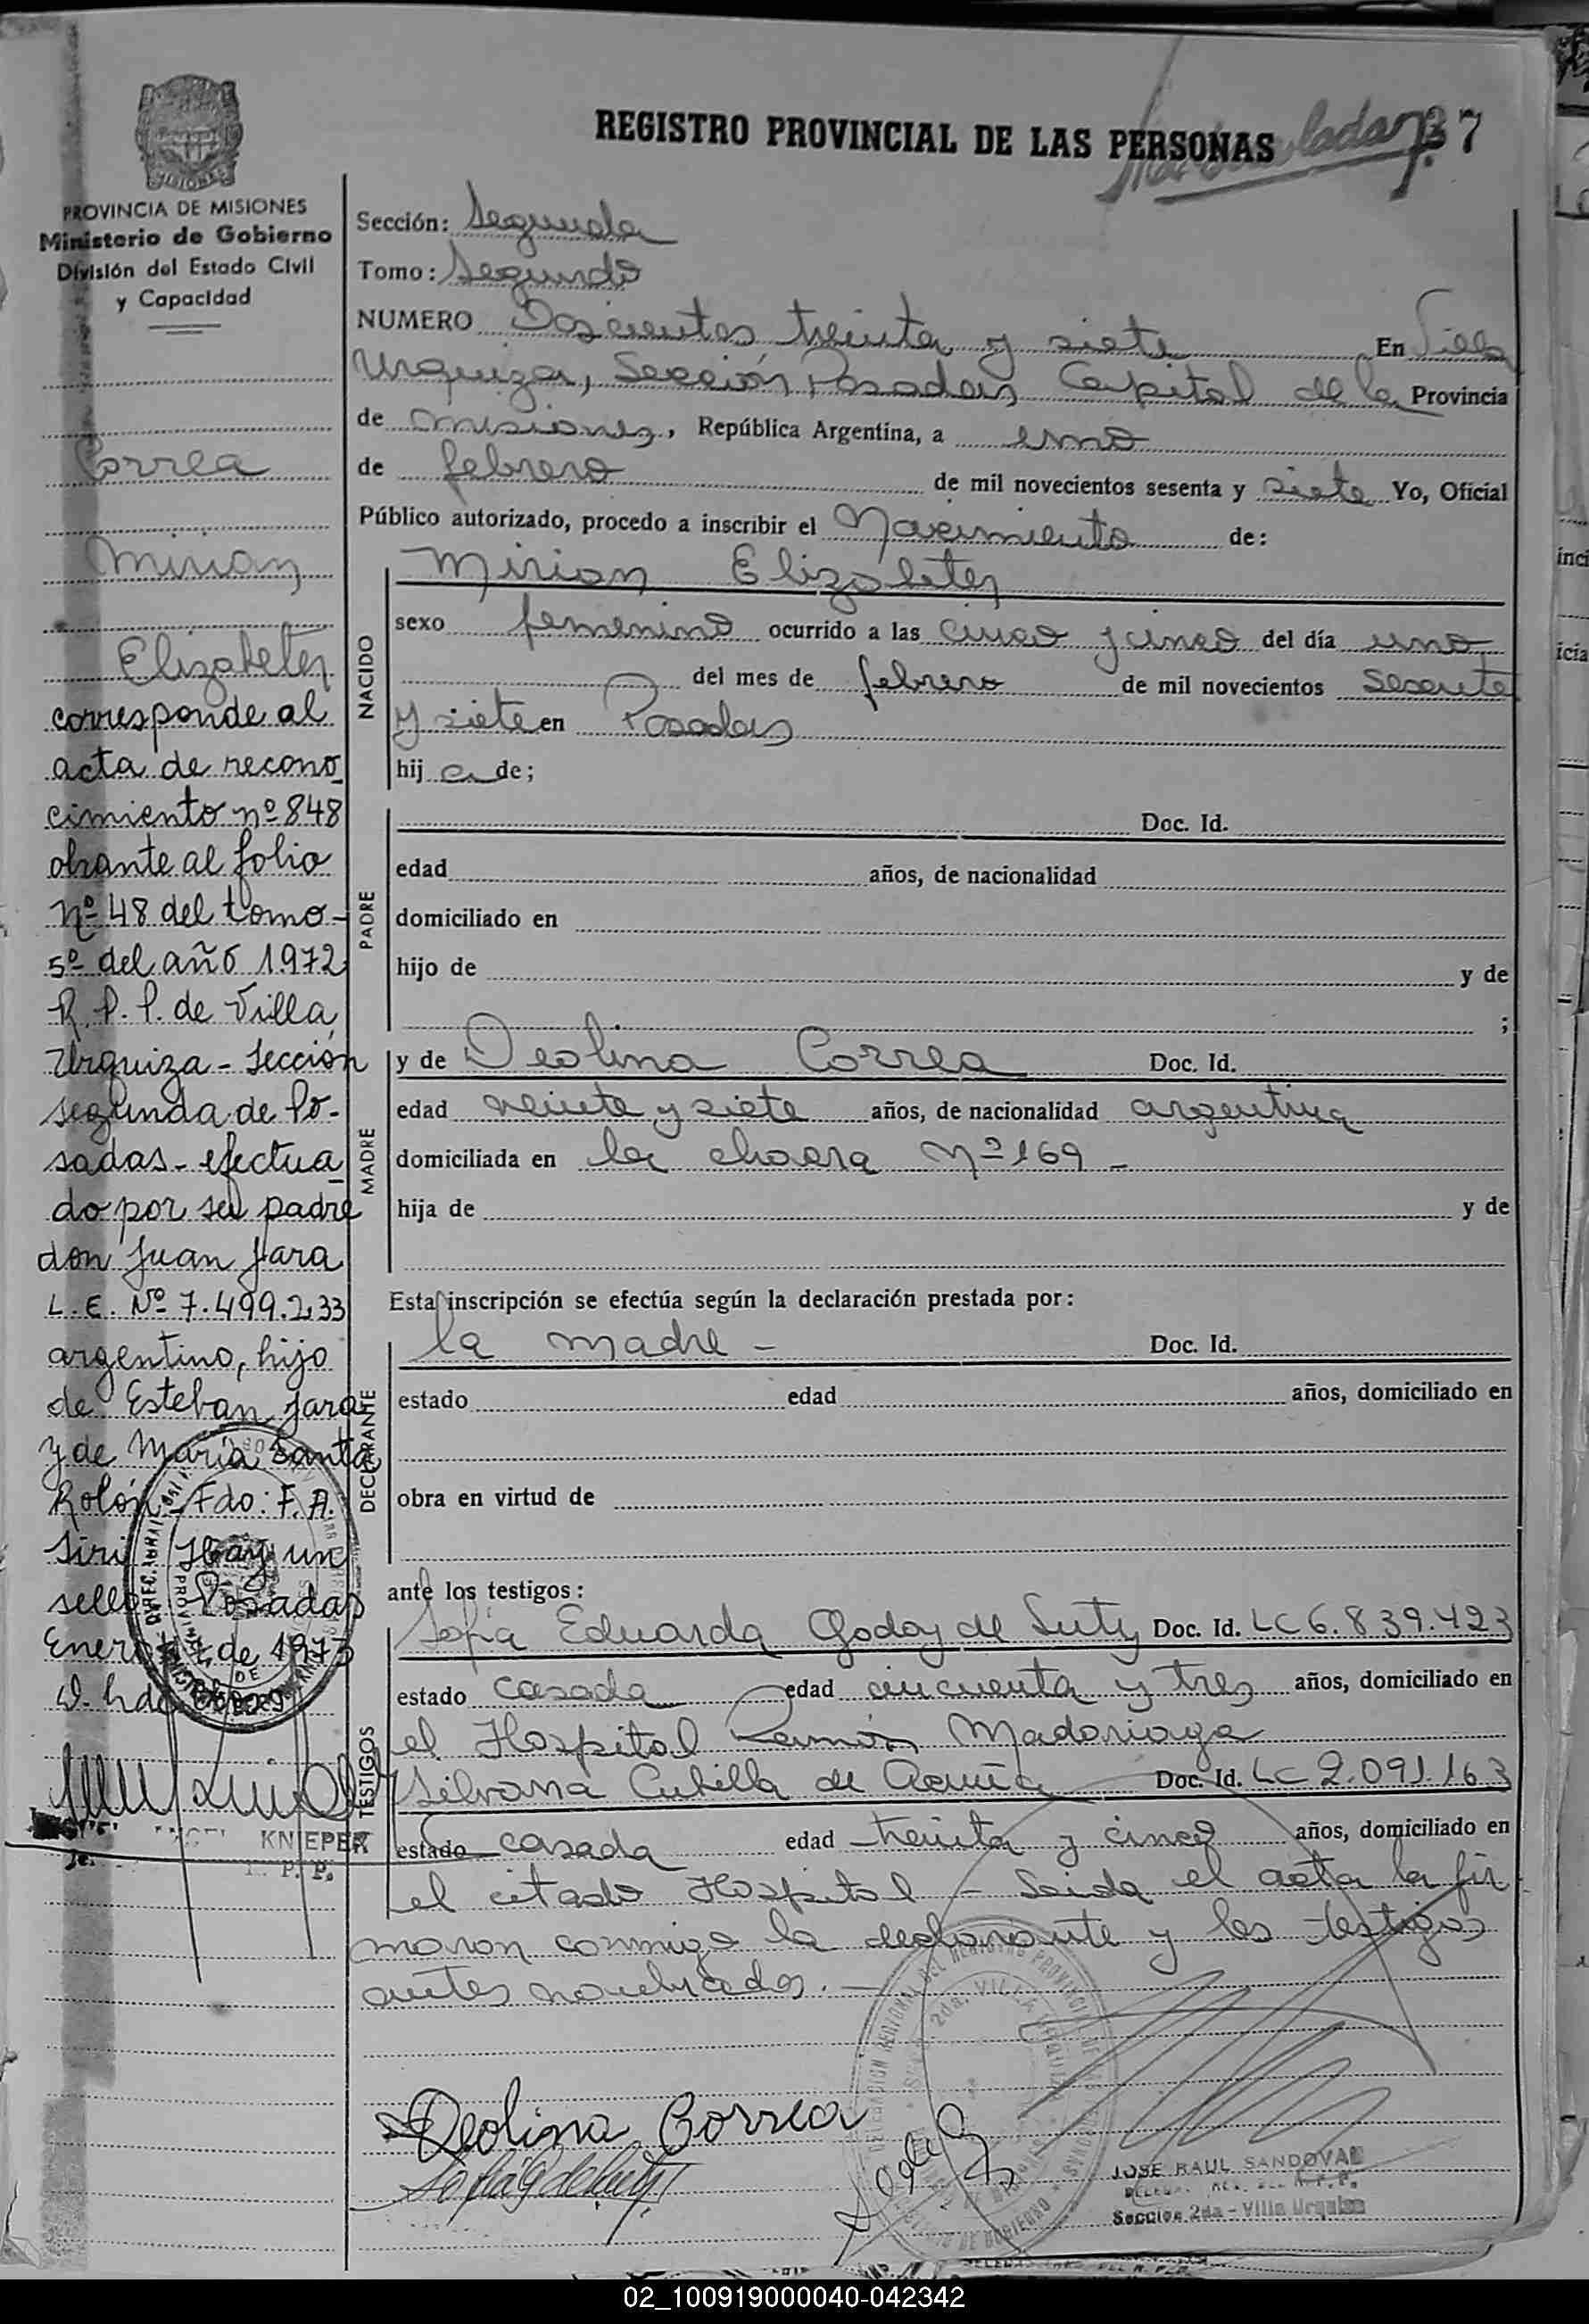 REGISTRO PROVINCIAL DE LAS PERSONAS
37
MISIONES
PROVINCIA DE MISIONES
Ministerio de Gobierno
División del Estado Civil
y Capacidad
Correa
Mirian
Elizabeter
corresponde al
acta de recono
cimiento nº 848
obrante al folio
nº 48 del tomo
5º del año 1972
R. P. P. de Villa
Urquiza - Sección
segunda de Po-
sadas - efectua
do por su padre
don Juan Jara
L. E. Nº 7.499.233
argentino, hijo
de Esteban Jara
y de María Santa
Rolón. Fdo: F. A.
Siri Hay un
sello Posadas
Enero 4 de 1973
KNIEPER
P. P.
Sección: Segunda
Tomo: Segundo
NUMERO Doscientos treinta y siete En Villa
Urquiza, Sección Posadas Capital de la Provincia
de Misiones, República Argentina, a uno
de febrero de mil novecientos sesenta y siete Yo, Oficial
Público autorizado, procedo a inscribir el Nacimiento de:
NACIDO
Mirian Elizabeter
sexo femenino ocurrido a las cinco y cinco del día uno
del mes de febrero de mil novecientos sesenta
y siete en Posadas
hij a de;
PADRE
Doc. Id.
edad años, de nacionalidad
domiciliado en
hijo de y de
;
MADRE
y de Deolina Correa Doc. Id.
edad veinte y siete años, de nacionalidad argentina
domiciliada en la chacra Nº 169 -
hija de y de
Esta inscripción se efectúa según la declaración prestada por:
DECLARANTE
la madre - Doc. Id.
estado edad años, domiciliado en
obra en virtud de
ante los testigos:
TESTIGOS
Sofia Eduarda Godoy de Suty Doc. Id. LC 6.839.423
estado casada edad cincuenta y tres años, domiciliado en
el Hospital Ramón Madariaga
Silvana Cubilla de Acuña Doc. Id. LC 2.091.163
estado casada edad treinta y cinco años, domiciliado en
el citado Hospital - Leida el acta la fir
maron conmigo la declarante y los testigos
antes nombrados. -
Deolina Correa
JOSE RAUL SANDOVAL
Sección 2da - Villa Urquiza
02_100919000040-042342